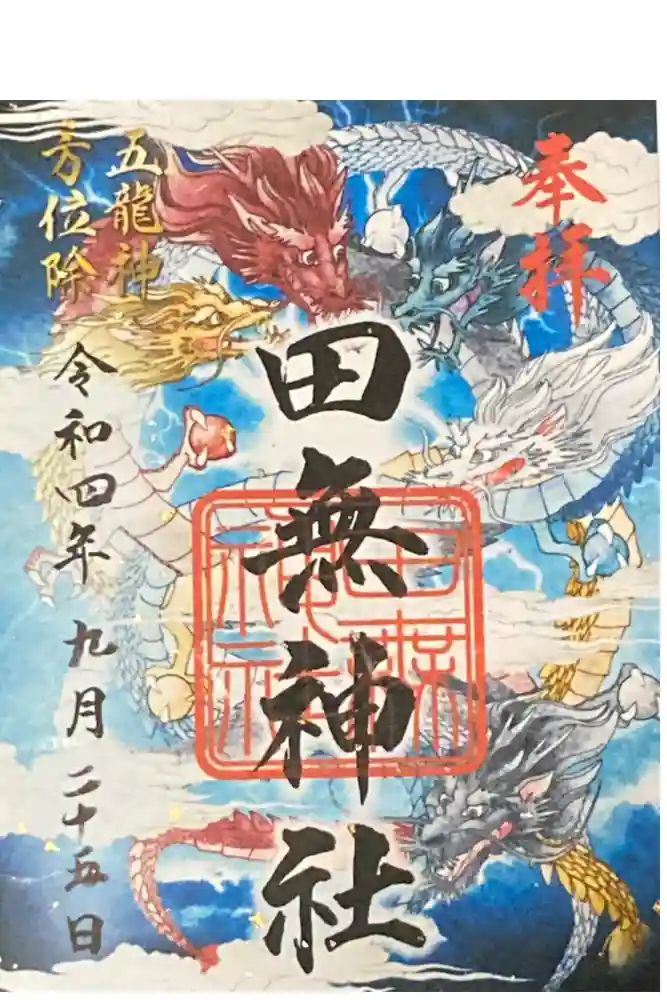 奉拝
田無神社
田無神社
五龍神
方位除
令和四年 九月二十五日